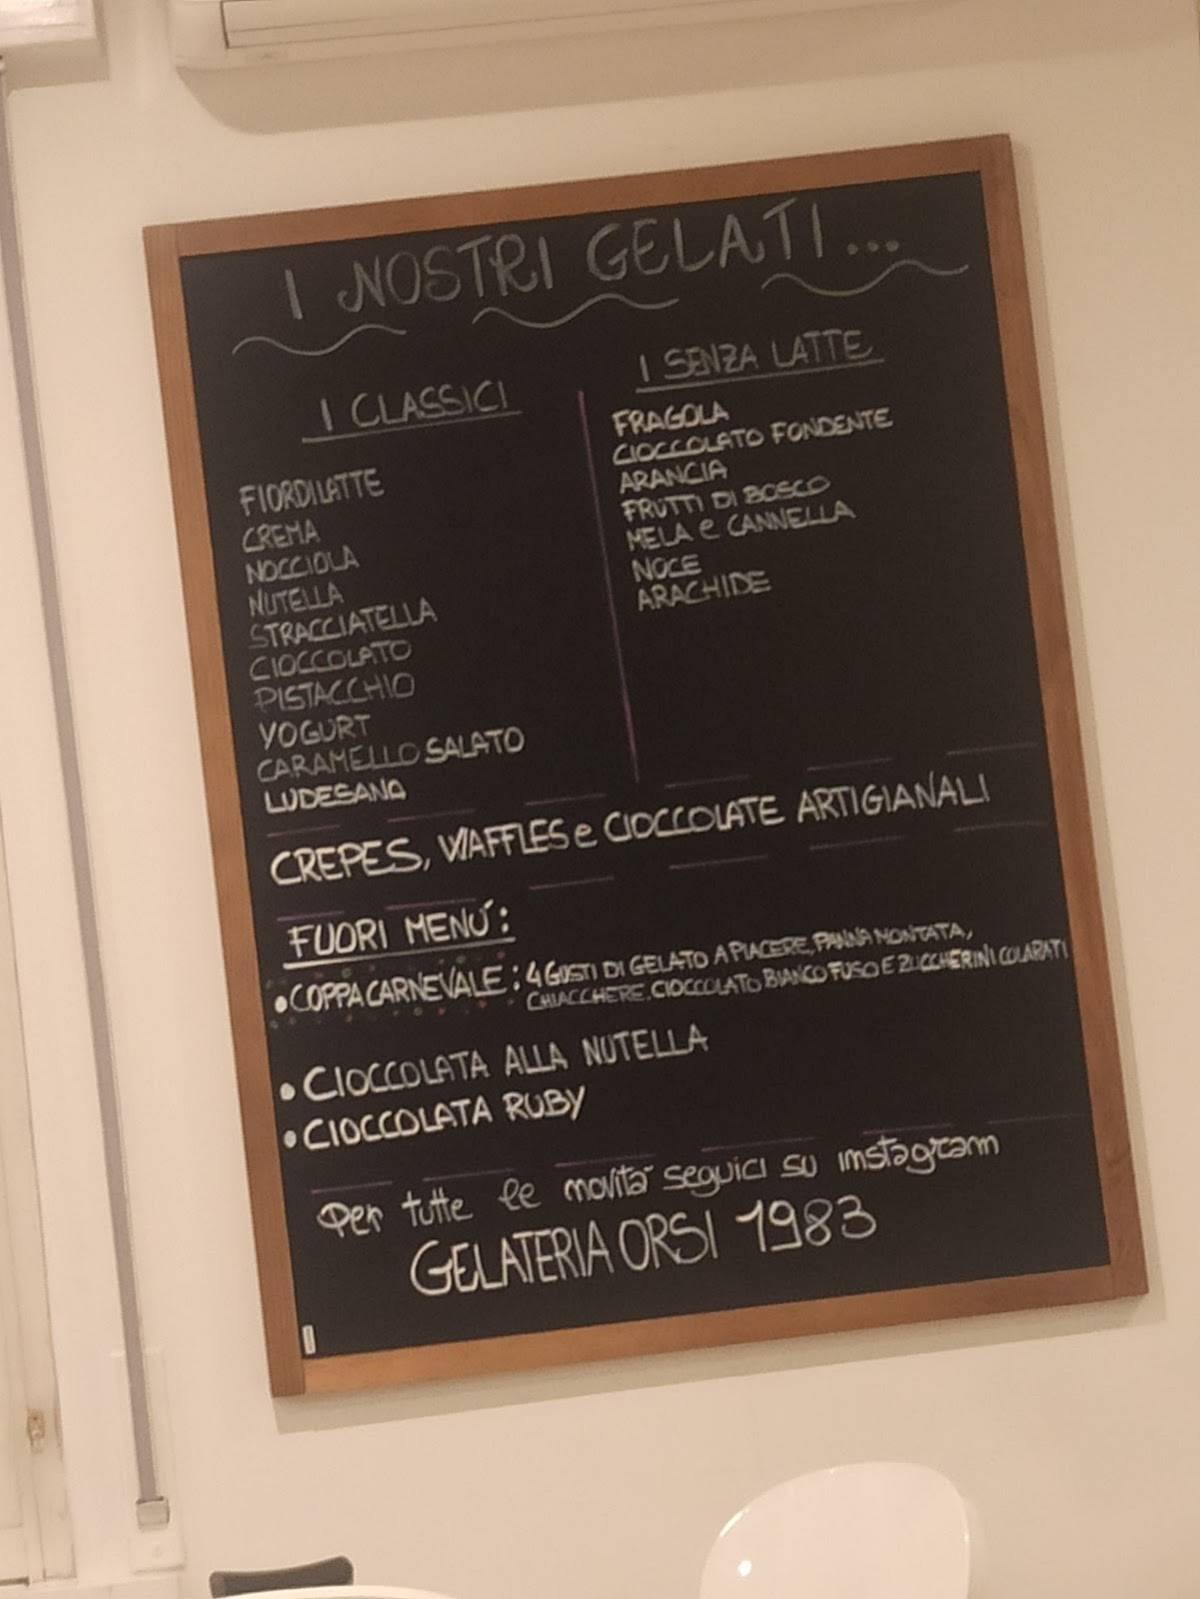 I NOSTRI GELATI...
I CLASSICI
FIORDILATTE
CREMA
NOCCIOLA
NUTELLA
STRACCIATELLA
CIOCCOLATO
PISTACCHIO
YOGURT
CARAMELLO SALATO
LUDESANA
I SENZA LATTE
FRAGOLA
CIOCCOLATO FONDENTE
ARANCIA
FRUTTI DI BOSCO
MELA e CANNELLA
NOCE
ARACHIDE
CREPES, WAFFLES e CIOCCOLATE ARTIGIANALI
FUORI MENÚ:
•COPPA CARNEVALE: 4 GUSTI DI GELATO A PIACERE, PANNA MONTATA,
CHIACCHERE, CIOCCOLATO BIANCO FUSO E ZUCCHERINI COLARATI
•CIOCCOLATA ALLA NUTELLA
•CIOCCOLATA RUBY
Per tutte le novità seguici su instagram
GELATERIA ORSI 1983